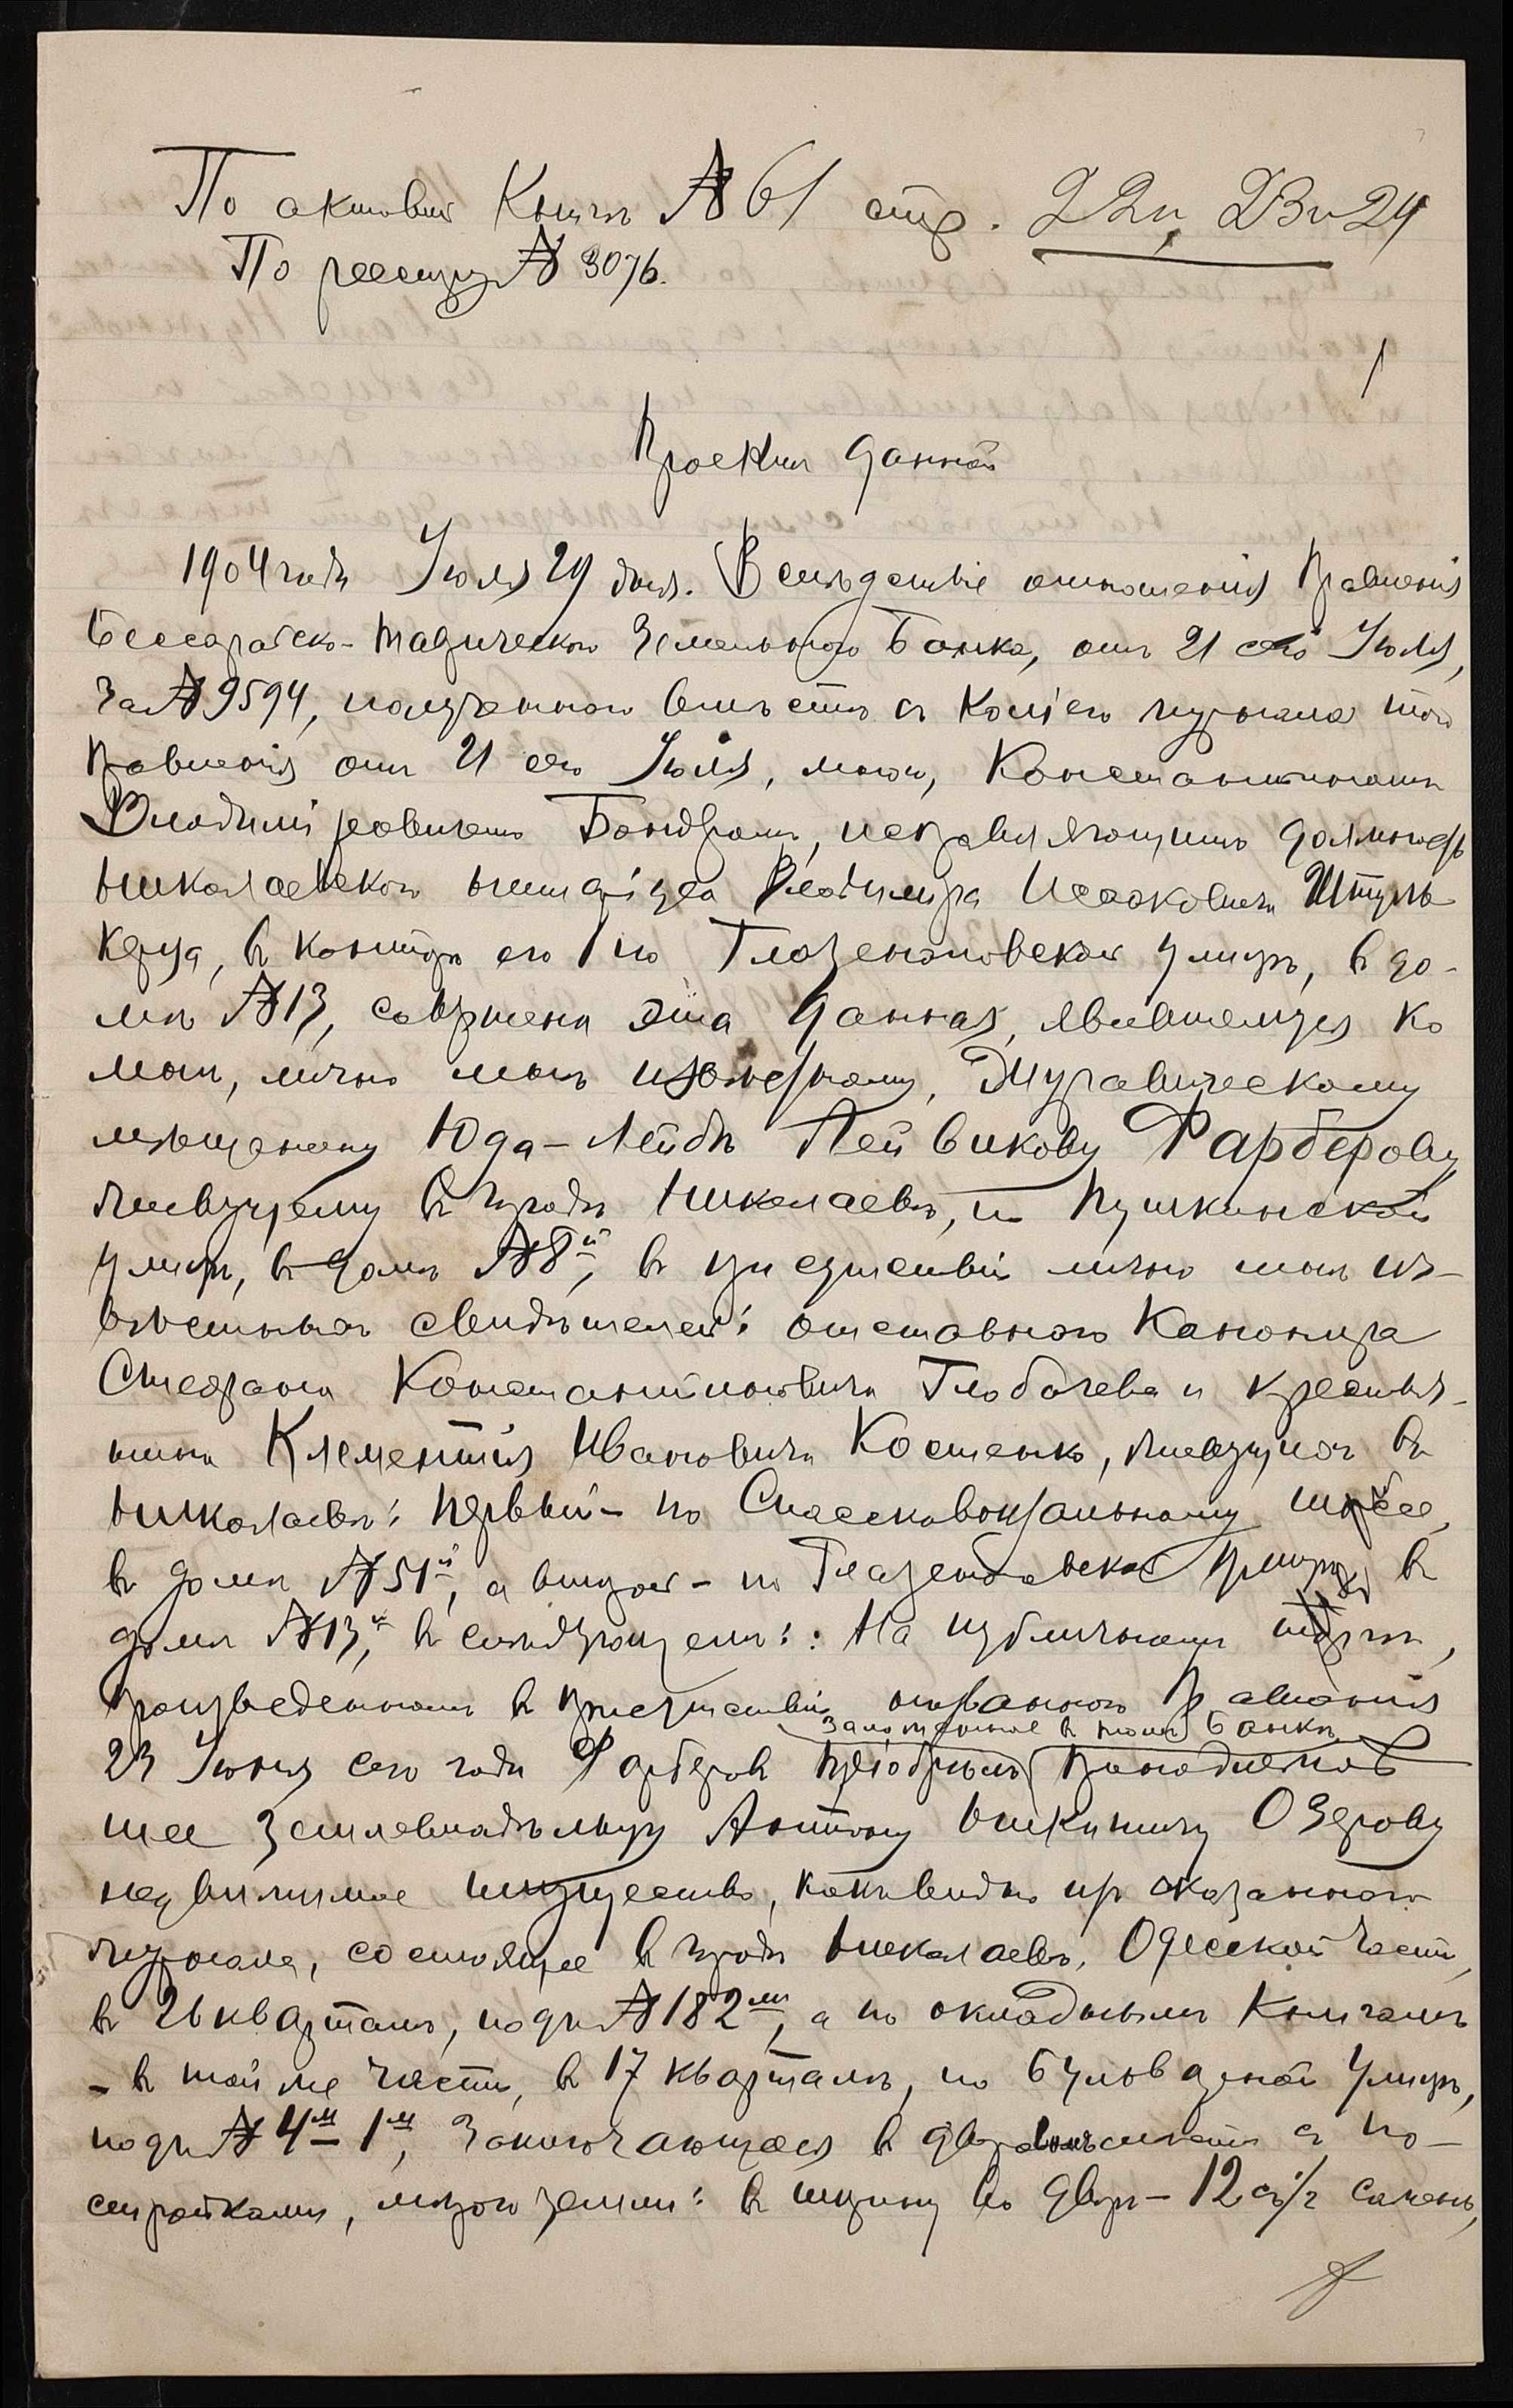 По актовой Книгѣ № 61 стр. 22, 23 и 24
По реестру № 3076.
1
Проектъ данной
1904 года Іюля 29 дня. Вслѣдствіе отношенія Правленія
Бессарабско-Таврическаго Земельнаго Банка, отъ 21 сего Іюля,
за № 9594, полученнаго вмѣстѣ съ копіею журнала того
Правленія отъ 21 сего Іюля, мною, Константиномъ
Владиміровичемъ Бондремъ, исправляющимъ должность
Николаевскаго нотаріуса Владимира Исааковича Штуль
керца, въ конторѣ его по Глазенаповской улицѣ, въ до-
мѣ № 13, совершена эта данная, явившемуся ко
мнѣ, лично мнѣ извѣстному,
мѣщанину Юда-Лейбѣ Лейвикову Фарберову,
живущему въ городѣ Николаевѣ, по Пушкинской
улицѣ, въ домѣ № 8й, въ присутствіи лично мнѣ из-
вѣстныхъ свидѣтелей: отставного Канонира
Стефана Константиновича Глобачева и крестья-
нина Клементія Ивановича Костенко, живущихъ въ
Николаевѣ: первый - по Спассковокзальному шоссе,
въ домѣ № 51й, а второй - по Глазенаповской улицѣ въ
домѣ № 13,й въ слѣдующемъ: На публичномъ торгѣ,
произведенномъ въ присутствіи названнаго Правленія
заложенное въ томъ Банкѣ
23 Іюня сего года Фарберовъ пріобрѣлъ принадлежав
шее землевладѣльцу Антону Никитичу Озерову
недвижимое имущество, какъ видно изъ сказаннаго
журнала, состоящее въ городѣ Николаевѣ, Одесской части,
въ 26 кварталѣ, подъ № 182мъ, а по окладнымъ книгамъ
- въ той же части, въ 17 кварталѣ, по Бульварной улицѣ,
подъ № 4м - 1м, заключающееся въ дворовомъ мѣстѣ съ по-
стройками, мѣрою земли: въ ширину по двору - 12 съ 1/2 сажень,